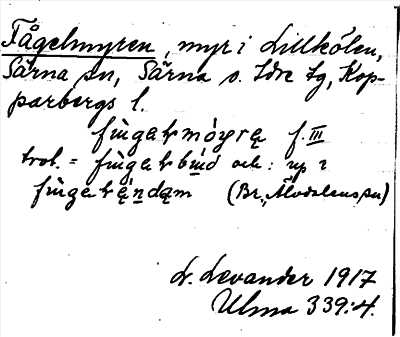 Fågelmyren, myr i Lillkölen,
Särna sn, Särna o. Idre tg, Kop-
parbergs l.
fùgaɫmöyrą f. III
trol. = fùgaɫb och : up ?
fùgaɫąndąm (Br., Älvdalens sn)
L. Levander 1917
Ulma 339:4.